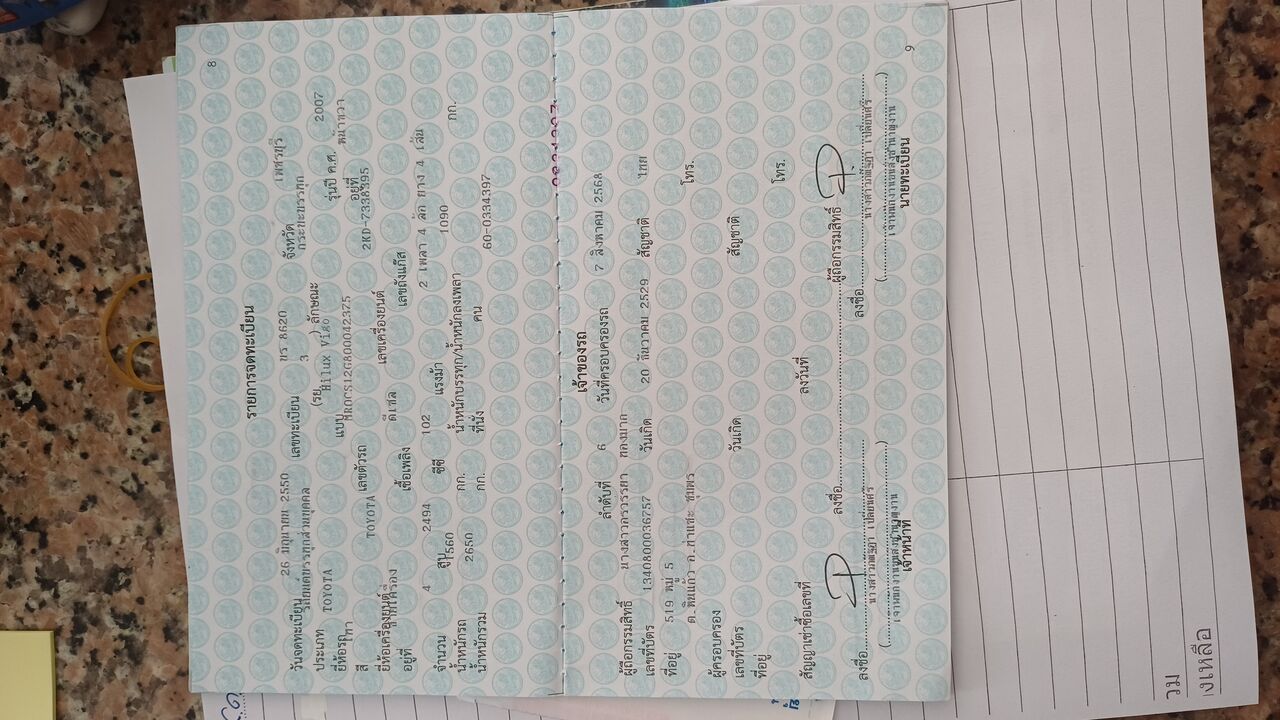 8
รายการจดทะเบียน
วันจดทะเบียน 26 มิถุนายน 2550 เลขทะเบียน บร 8620 จังหวัด เพชรบุรี
ประเภท รถยนต์บรรทุกส่วนบุคคล (รย. 3 ) ลักษณะ กระบะบรรทุก
ยี่ห้อรถ TOYOTA แบบ Hilux Vigo รุ่นปี ค.ศ. 2007
สี เทา เลขตัวรถ MROCS12G800042375 อยู่ที่
ยี่ห้อเครื่องยนต์ TOYOTA เลขเครื่องยนต์ 2KD-7338395
อยู่ที่ เชื้อเพลิง ดีเซล เลขถังแก๊ส
จำนวน 4 สูบ 2494 ซีซี 102 แรงม้า 2 เพลา 4 ล้อ ยาง 4 เส้น
น้ำหนักรถ 1560 กก. น้ำหนักบรรทุก/น้ำหนักลงเพลา 1090 กก.
น้ำหนักรวม 2650 กก. ที่นั่ง คน 60-0334397
เจ้าของรถ
ลำดับที่ 6 วันที่ครอบครองรถ 7 สิงหาคม 2568
ผู้ถือกรรมสิทธิ์ นางสาวกวรรยา ทองมาก
เลขที่บัตร 1340800036757 วันเกิด 20 ธันวาคม 2529 สัญชาติ ไทย
ที่อยู่ 519 หมู่ 5 โทร.
ต.หินแก้ว อ.ท่าแซะ ชุมพร
ผู้ครอบครอง
เลขที่บัตร วันเกิด สัญชาติ
ที่อยู่ โทร.
สัญญาเช่าซื้อเลขที่ ลงวันที่
ลงชื่อ ผู้ถือกรรมสิทธิ์
ลงชื่อ ลงชื่อ
เจ้าหน้าที่ นายทะเบียน
9
รวม